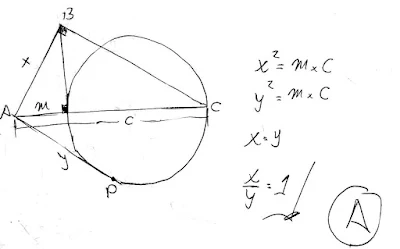 B
x
A
m
C
c
y
P
x² = m × C
y² = m × C
x = y
x/y = 1
A